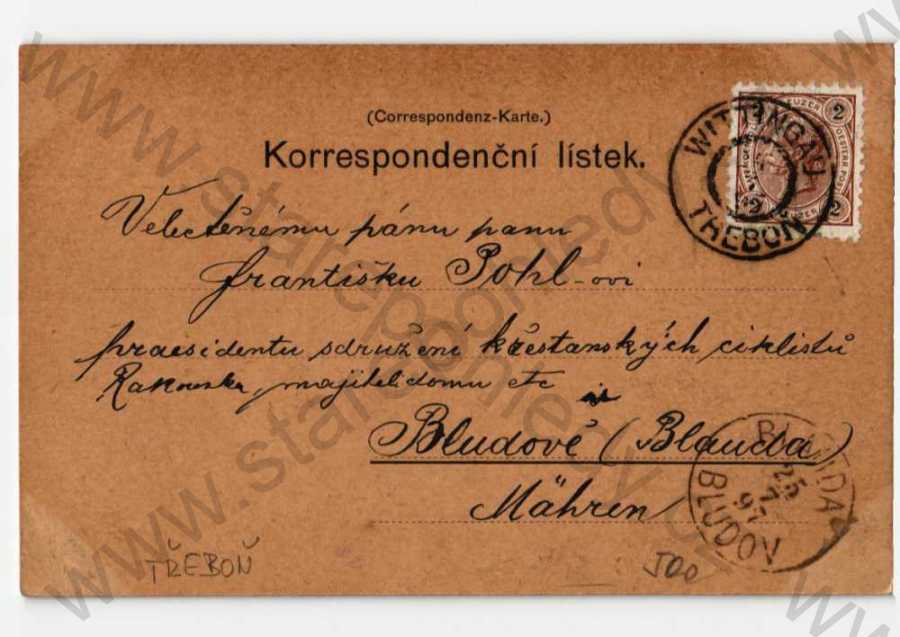 (Correspondenz-Karte.)
Korrespondenční lístek.
WITTINGAU
TŘEBOŇ
2 2
2 2
Velectěnému pánu panu
Františku Pohl-ovi
praesidentu sdružení křestanských ciklistů
Rakouska, majiteli domu etc
Bludově (Blauda)
Mähren
BLAUDA
25
7
97
BLUDOV
TŘEBOŇ
www.starepohledy.cz